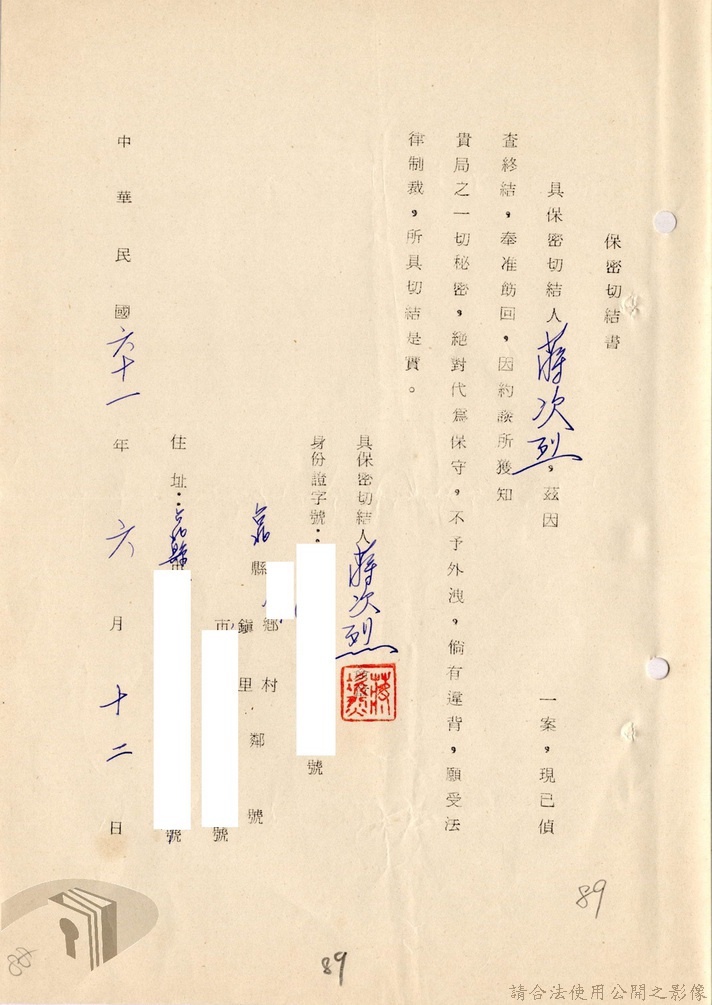 保密切結書
具保密切結人蔣次烈，茲因 一案，現已偵
查終結，奉准飭回，因約談所獲知
貴局之一切秘密，絕對代為保守，不予外洩，倘有違背，願受法
律制裁，所具切結是實。
具保密切結人蔣次烈
身份證字號： 號
嘉縣 鄉 村 鄰 號
市 鎮 里 號
住址：嘉縣 號
中華民國六十一年六月十二日
89
89
88
請合法使用公開之影像